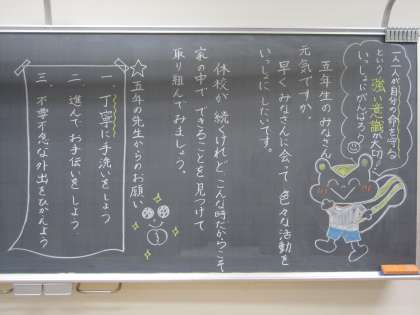 一人一人が自分の命を守る
という強い意識が大切
いっしょにがんばろう
五年生のみなさん
元気ですか。
早くみなさんに会って色々な活動を
いっしょにしたいです。
休校が続くけれど、こんな時だからこそ
家の中でできることを見つけて
取り組んでみましょう。
☆五年の先生からのお願い
一、丁寧に手洗いをしよう
二、進んでお手伝いをしよう
三、不要不急な外出をひかえよう